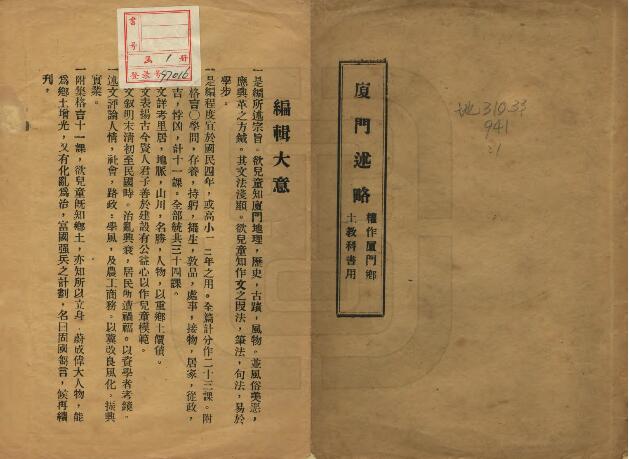 廈門述略
權作廈門鄉
土教科書用
地31033
941
:1
書號
函1冊
登录号97016
編輯大意
一是編所述宗旨。欲兒童知廈門地理,歷史,古蹟,風物。並風俗美惡,
應興革之方鍼。其文法淺顯。欲兒童知作文之段法,筆法,句法,易於
學步。
一是編程度宜於國民四年,或高小一二年之用。全篇計分作二十三課。附
格言〇學問,存養,持躬,攝生,敦品,處事,接物,居家,從政,
吉,悖凶,計十一課。全部統共三十四課。
文詳考里居,地脈,山川,名勝,人物,以重鄉土價値。
文表揚古今賢人君子善於建設有公益心以作兒童模範。
文叙明末清初至民國時。治亂興衰,居民所遭禍福。以資學者考鏡。
述文評論人情,社會,路政,學風,及農工商務。以冀改良風化。振興
實業。
一附集格言十一課,欲兒童旣知鄉土,亦知所以立身,蔚成偉大人物,能
爲鄉土增光,又有化亂爲治,富國强兵之計劃,名曰固國芻言,候再續
刋。